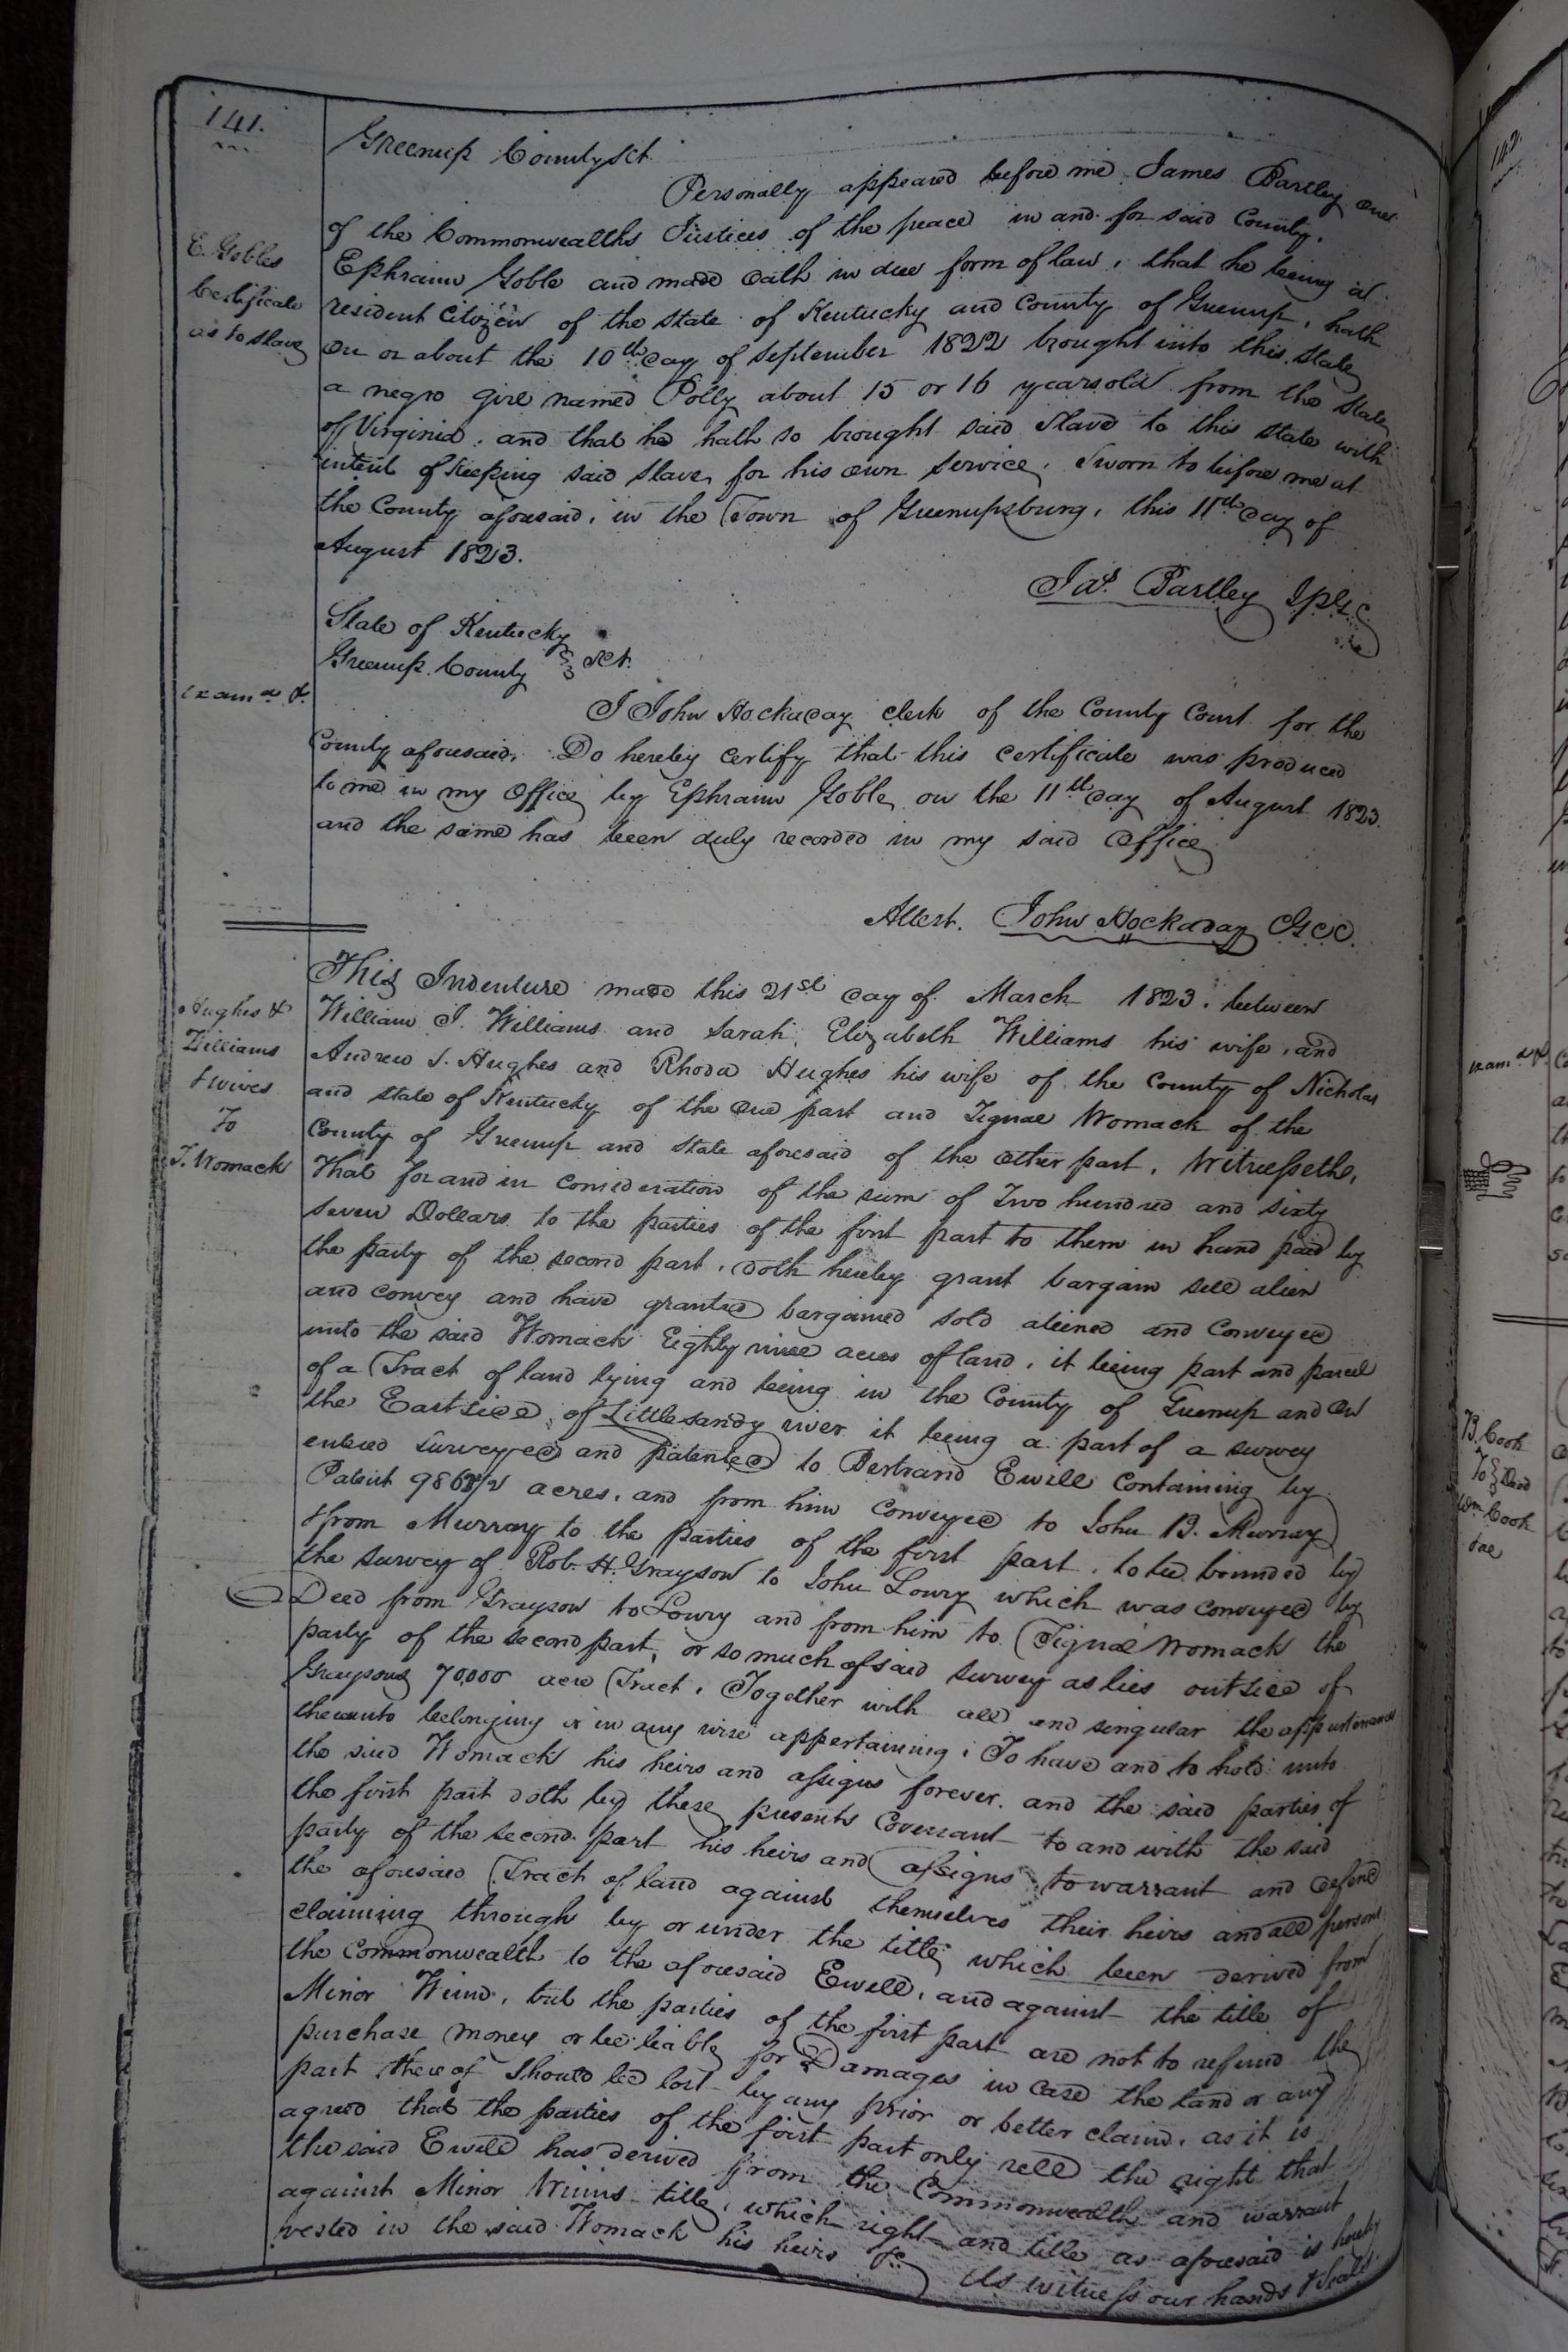 141.
Greenup County Sct.
Personally appeared before me James Bartley one
of the Commonwealths Justices of the peace in and for said County,
E. Gobles
Certificate
as to Slave
Ephraim Goble and made oath in due form of law, that he being a
resident Citizen of the state of Kentucky and County of Greenup, hath
on or about the 10th day of September 1822 brought into this state
a negro girl named Polly about 15 or 16 years old from the state
of Virginia, and that he hath so brought said Slave to this state with
intent of Keeping said slave for his own service. Sworn to before me at
the County aforesaid, in the Town of Greenupsburg, this 11th day of
August 1823.
Jas. Bartley JPGC
State of Kentucky
Greenup County Sct.
Exam.d
I John Hockaday clerk of the County Court for the
County aforesaid, Do hereby certify that this certificate was produced
to me in my Office by Ephraim Goble on the 11th day of August 1823.
and the same has been duly recorded in my said Office
Attest. John Hockaday CGCC.
Hughes &
Williams
& wives
To
T. Womack
This Indenture made this 21st day of March 1823. between
William J. Williams and Sarah Elizabeth Williams his wife, and
Andrew S. Hughes and Rhoda Hughes his wife of the County of Nicholas
and state of Kentucky of the one part and Tignal Womack of the
County of Greenup and state aforesaid of the other part, Witnesseth,
That for and in consideration of the sum of Two hundred and sixty
seven Dollars to the parties of the first part to them in hand paid by
the party of the second part, doth hereby grant bargain sell alien
and convey and have granted bargained sold aliened and Conveyed
unto the said Womack Eighty nine acres of land, it being part and parcel
of a Tract of land lying and being in the County of Greenup and on
the East side of Little sandy river it being a part of a survey
entered surveyed and patented to Bertrand Ewell containing by
Patent acres, and from him conveyed to John B. Murray
& from Murray to the parties of the first part, to be bounded by
the survey of Rob. H. Grayson to John Lowry which was conveyed by
Deed from Grayson to Lowry and from him to Tignal Womack the
party of the second part, or so much of said survey as lies outside of
Graysons 70,000 acre Tract, Together with all and singular the appurtenances
thereunto belonging or in any wise appertaining; To have and to hold unto
the said Womack his heirs and assigns forever. and the said parties of
the first part doth by these presents Covenant to and with the said
party of the second part his heirs and assigns to warrant and defend
the aforesaid Tract of land against themselves their heirs and all persons
claiming through by or under the title which been derived from
the Commonwealth to the aforesaid Ewell, and against the title of
Minor Winn, but the parties of the first part are not to refund the
purchase money or be liable for Damages in case the land or any
part thereof should be lost by any prior or better claim, as it is
agreed that the parties of the first part only sell the right that
the said Ewell has derived from the Commonwealth and warrant
against Minor Winns title, which right and title as aforesaid is hereby
vested in the said Womack his heirs &c As witness our hands & seals
142.
Exam.d
B. Cook
To Deed
Wm Cook